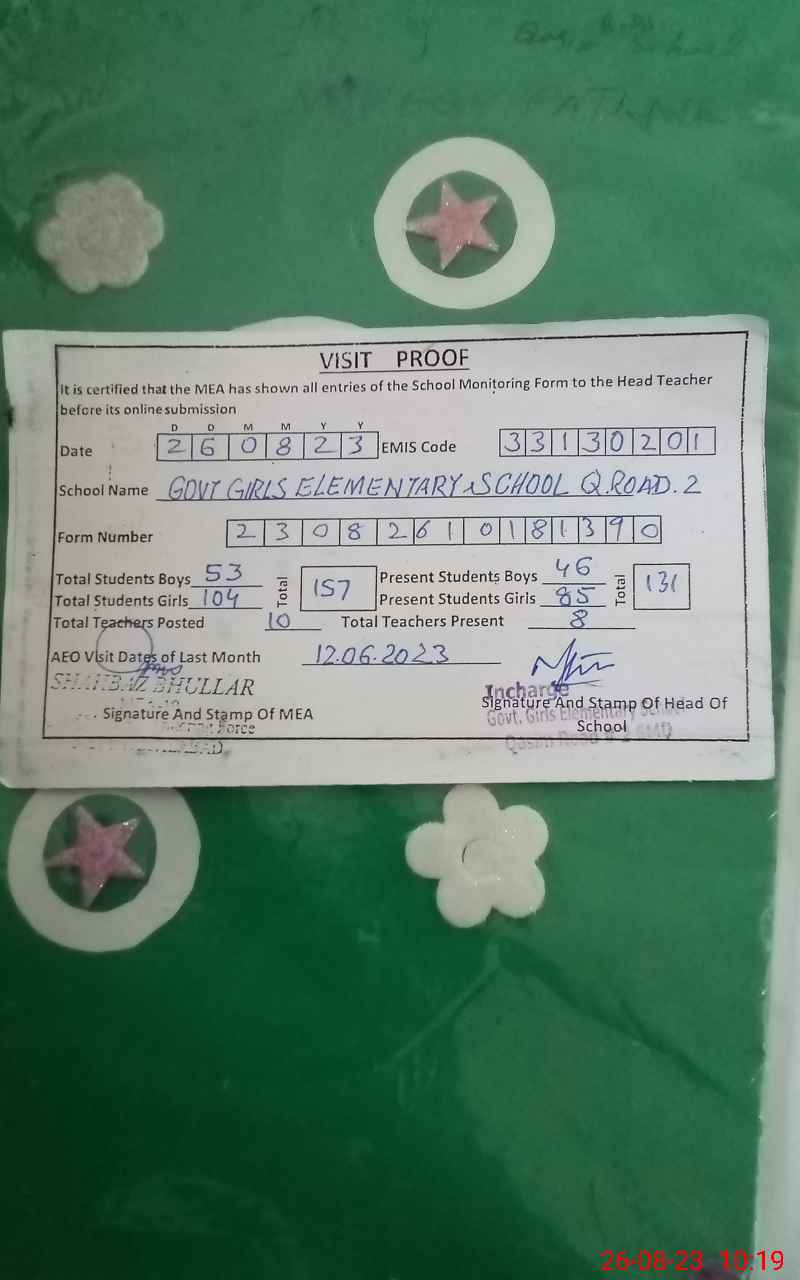 VISIT PROOF
It is certified that the MEA has shown all entries of the School Monitoring Form to the Head Teacher
before its online submission
D D M M Y Y
Date 2 6 0 8 2 3 EMIS Code 3 3 1 3 0 2 0 1
School Name GOVT GIRLS ELEMENTARY SCHOOL Q.ROAD.2
Form Number 2 3 0 8 2 6 1 0 1 8 1 3 9 0
Total Students Boys 53 Total 157 Present Students Boys 46 Total 131
Total Students Girls 104 Present Students Girls 85
Total Teachers Posted 10 Total Teachers Present 8
AEO Visit Dates of Last Month 12.06.2023
SHAHBAZ BHULLAR
Incharge
Signature And Stamp Of MEA Signature And Stamp Of Head Of
School
Govt. Girls Elementary
Force
26-08-23 10:19